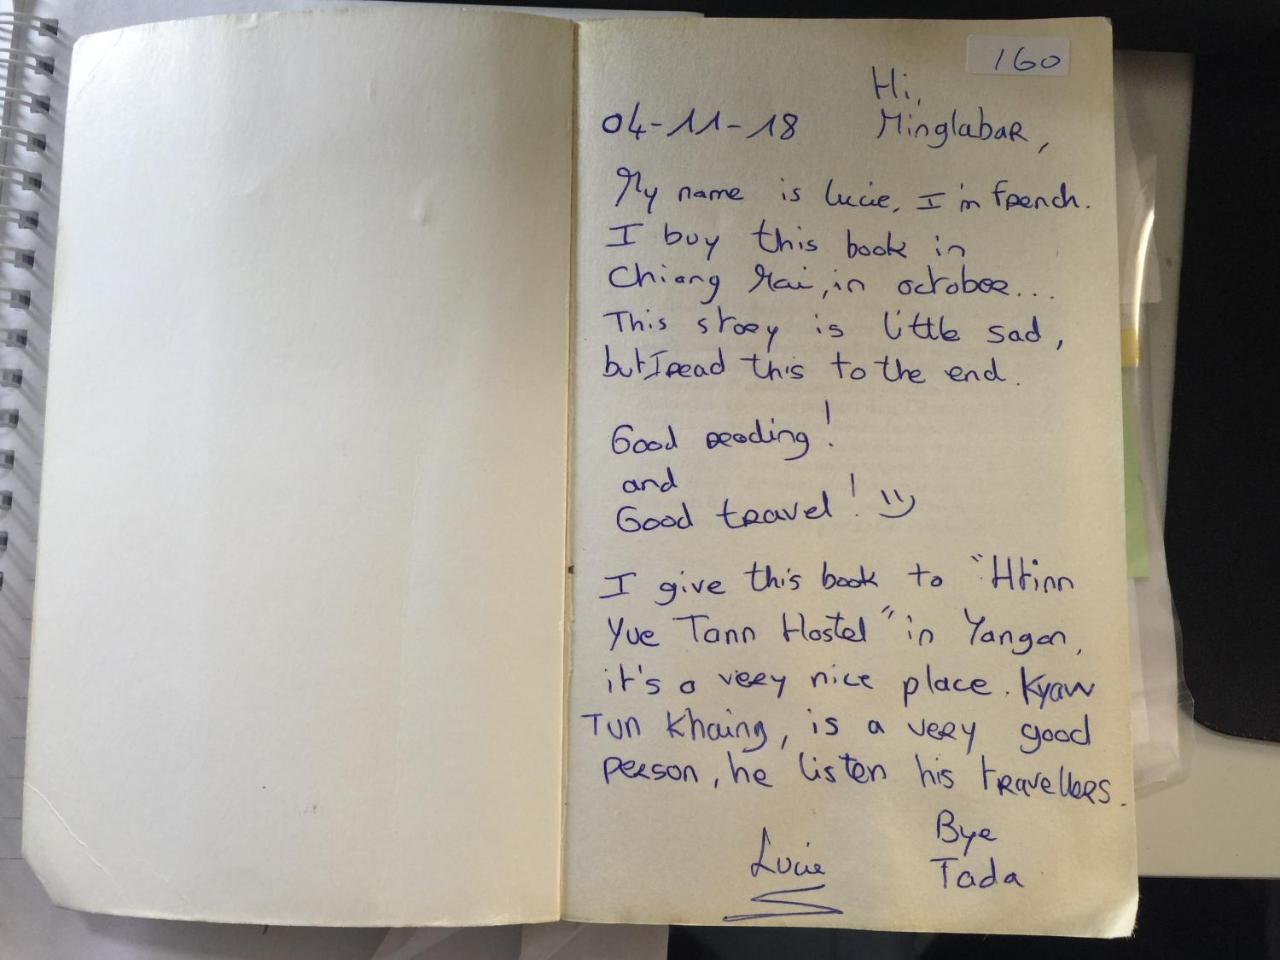 160
Hi,
04-11-18 Minglabar,
My name is Lucie, I'm french.
I buy this book in
Chiang Mai, in october...
This story is little sad,
but I read this to the end.
Good reading!
and
Good travel!
I give this book to "Htinn
Yue Tann Hostel" in Yangon,
it's a very nice place. Kyaw
Tun Khaing, is a very good
person, he listen his travellers.
Bye
Lucie Tada